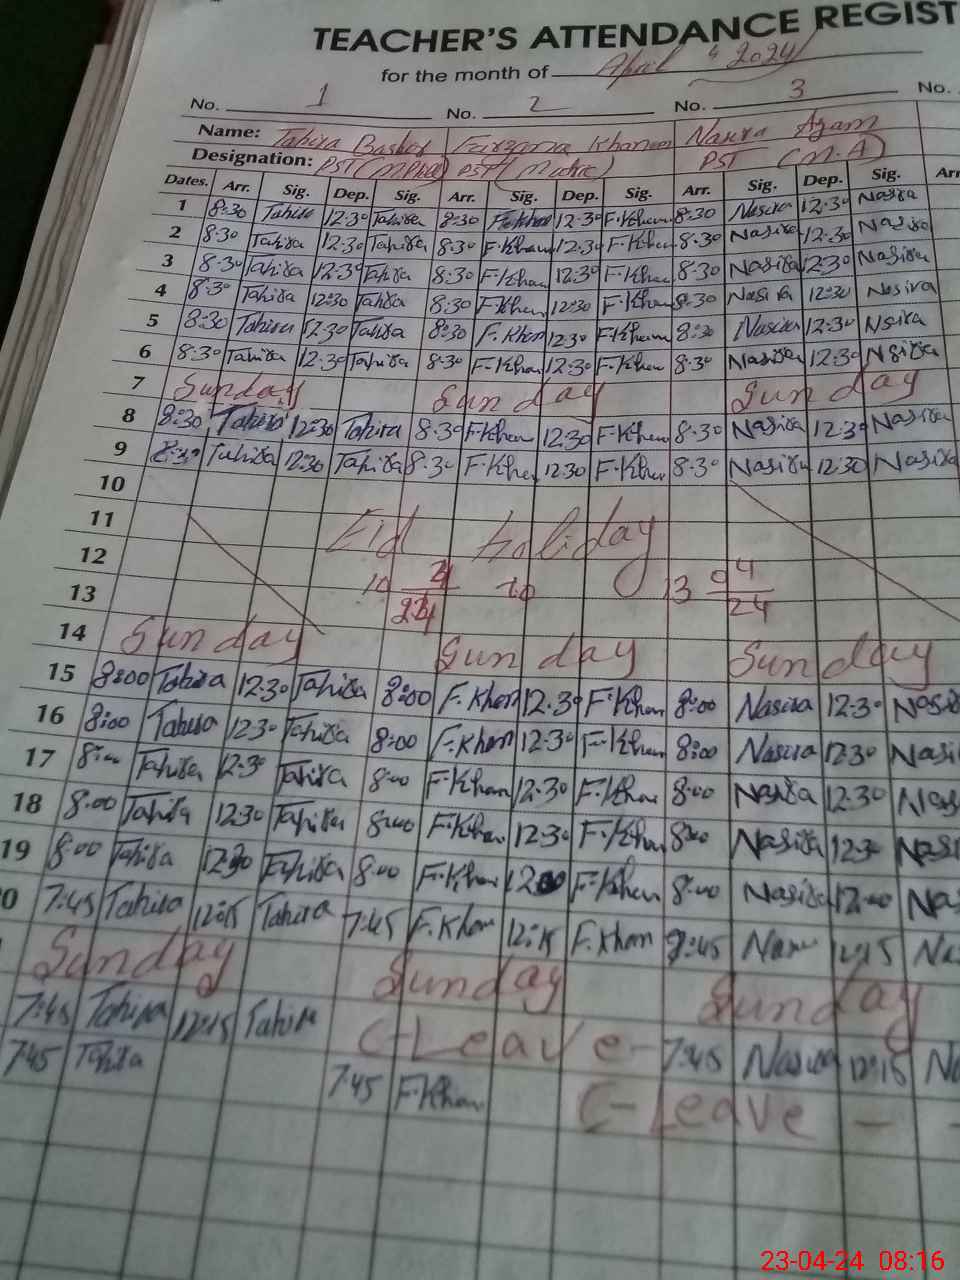 TEACHER'S ATTENDANCE REGIST
for the month of April 2024
No. 1 No. 2 No. 3 No.
Name: Tahira Bashir Farzana Khanum Nasira Azam
Designation: PST (MPhil) PST (Matric) PST (M.A)
Dates. Arr. Sig. Dep. Sig. Arr. Sig. Dep. Sig. Arr. Sig. Dep. Sig. Arr
1 8:30 Tahira 12:30 Tahira 8:30 F.Khan 12:30 F.Khan 8:30 Nasira 12:30 Nasira
2 8:30 Tahira 12:30 Tahira 8:30 F.Khan 12:30 F.Khan 8:30 Nasira 12:30 Nasira
3 8:30 Tahira 12:30 Tahira 8:30 F.Khan 12:30 F.Khan 8:30 Nasira 12:30 Nasira
4 8:30 Tahira 12:30 Tahira 8:30 F.Khan 12:30 F.Khan 8:30 Nasira 12:30 Nasira
5 8:30 Tahira 12:30 Tahira 8:30 F.Khan 12:30 F.Khan 8:30 Nasira 12:30 Nsira
6 8:30 Tahira 12:30 Tahira 8:30 F.Khan 12:30 F.Khan 8:30 Nasira 12:30 Nsira
7 Sunday Sunday Sunday
8 8:30 Tahira 12:30 Tahira 8:30 F.Khan 12:30 F.Khan 8:30 Nasira 12:30 Nasira
9 8:30 Tahira 12:30 Tahira 8:30 F.Khan 12:30 F.Khan 8:30 Nasira 12:30 Nasira
10
11 Eid holiday
12
13 10 4/24 to 13 04/24
14 Sunday Sunday Sunday
15 8:00 Tahira 12:30 Tahira 8:00 F.Khan 12:30 F.Khan 8:00 Nasira 12:30 Nasi
16 8:00 Tahira 12:30 Tahira 8:00 F.Khan 12:30 F.Khan 8:00 Nasira 12:30 Nasi
17 8:00 Tahira 12:30 Tahira 8:00 F.Khan 12:30 F.Khan 8:00 Nasira 12:30 Nas
18 8:00 Tahira 12:30 Tahira 8:00 F.Khan 12:30 F.Khan 8:00 Nasira 12:30 Nasi
19 8:00 Tahira 12:30 Tahira 8:00 F.Khan 12:00 F.Khan 8:00 Nasira 12:00 Nas
0 7:45 Tahira 12:15 Tahira 7:45 F.Khan 12:15 F.Khan 7:45 12:15 Na
Sunday Sunday Sunday
7:45 Tahira 12:15 Tahira C-Leave- 7:45 Nasira 12:15 Na
7:45 Tahira 7:45 F.Khan C-Leave - -
23-04-24 08:16